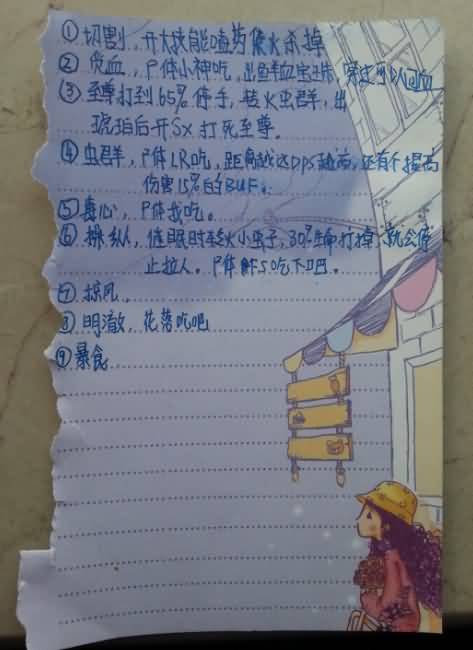 ① 切割，开大技能嗑药集火杀掉
② 优血，尸体小神吃，出鲜血宝珠，穿过可以回血
③ 至尊打到65%停手，转火虫群，出
琥珀后开SX打死至尊。
④ 虫群，尸体LR吃，距离越远DPS越高，还有个提高
伤害15%的BUF。
⑤ 毒心，尸体我吃。
⑥ 操纵，催眠时转火小虫子，30%生命打掉，就会停
止拉人。尸体 吃下吧。
⑦ 掠风
⑧ 明澈，花落吃吧
⑨ 暴食